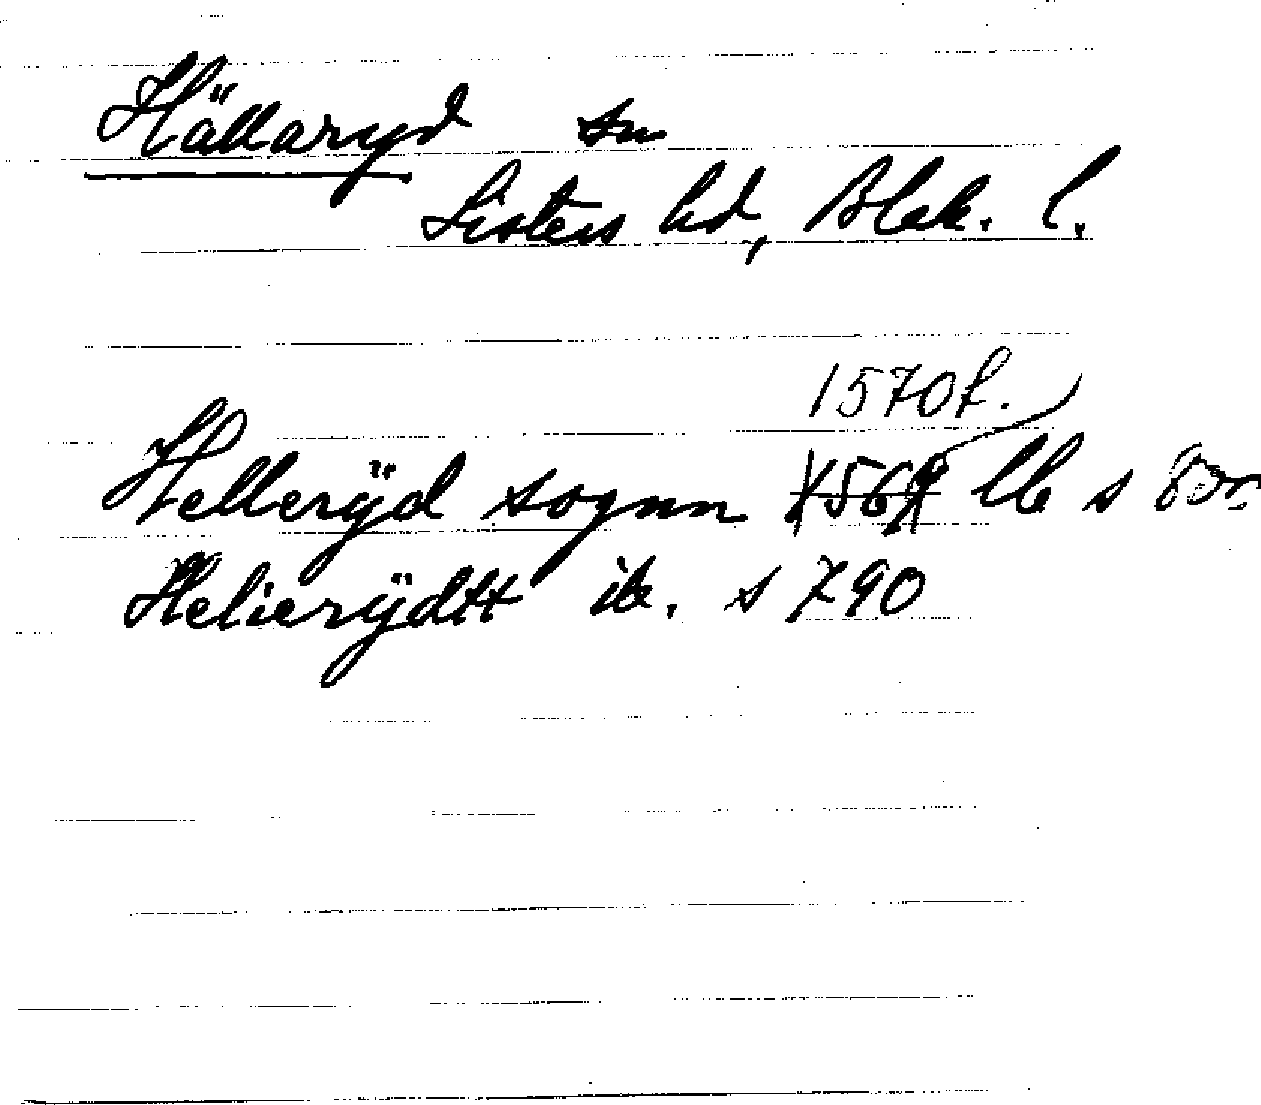 Hällaryd sn
Listers hd, Blek. l.
1570f.
Hellerÿd sognn 1569 lb s
Helierÿdtt ib. s 790